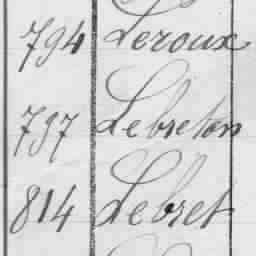 794 Leroux
797 Lebreton
814 Lebret